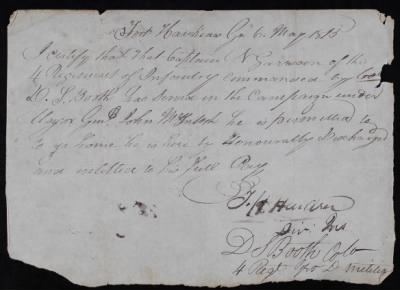 Fort Hawkins Ga 6 May 1815
I certify that that Captain N Garrison of the
4 Regiment of Infantry commanded by
D. S. Booth has served in the Campaign under
Major Genl John McIntosh he is permitted to
to go home he is here by Honourably Discharged
and entitled to his full Pay
Div Ins
D S Booth Colo
4 Regt D Militia